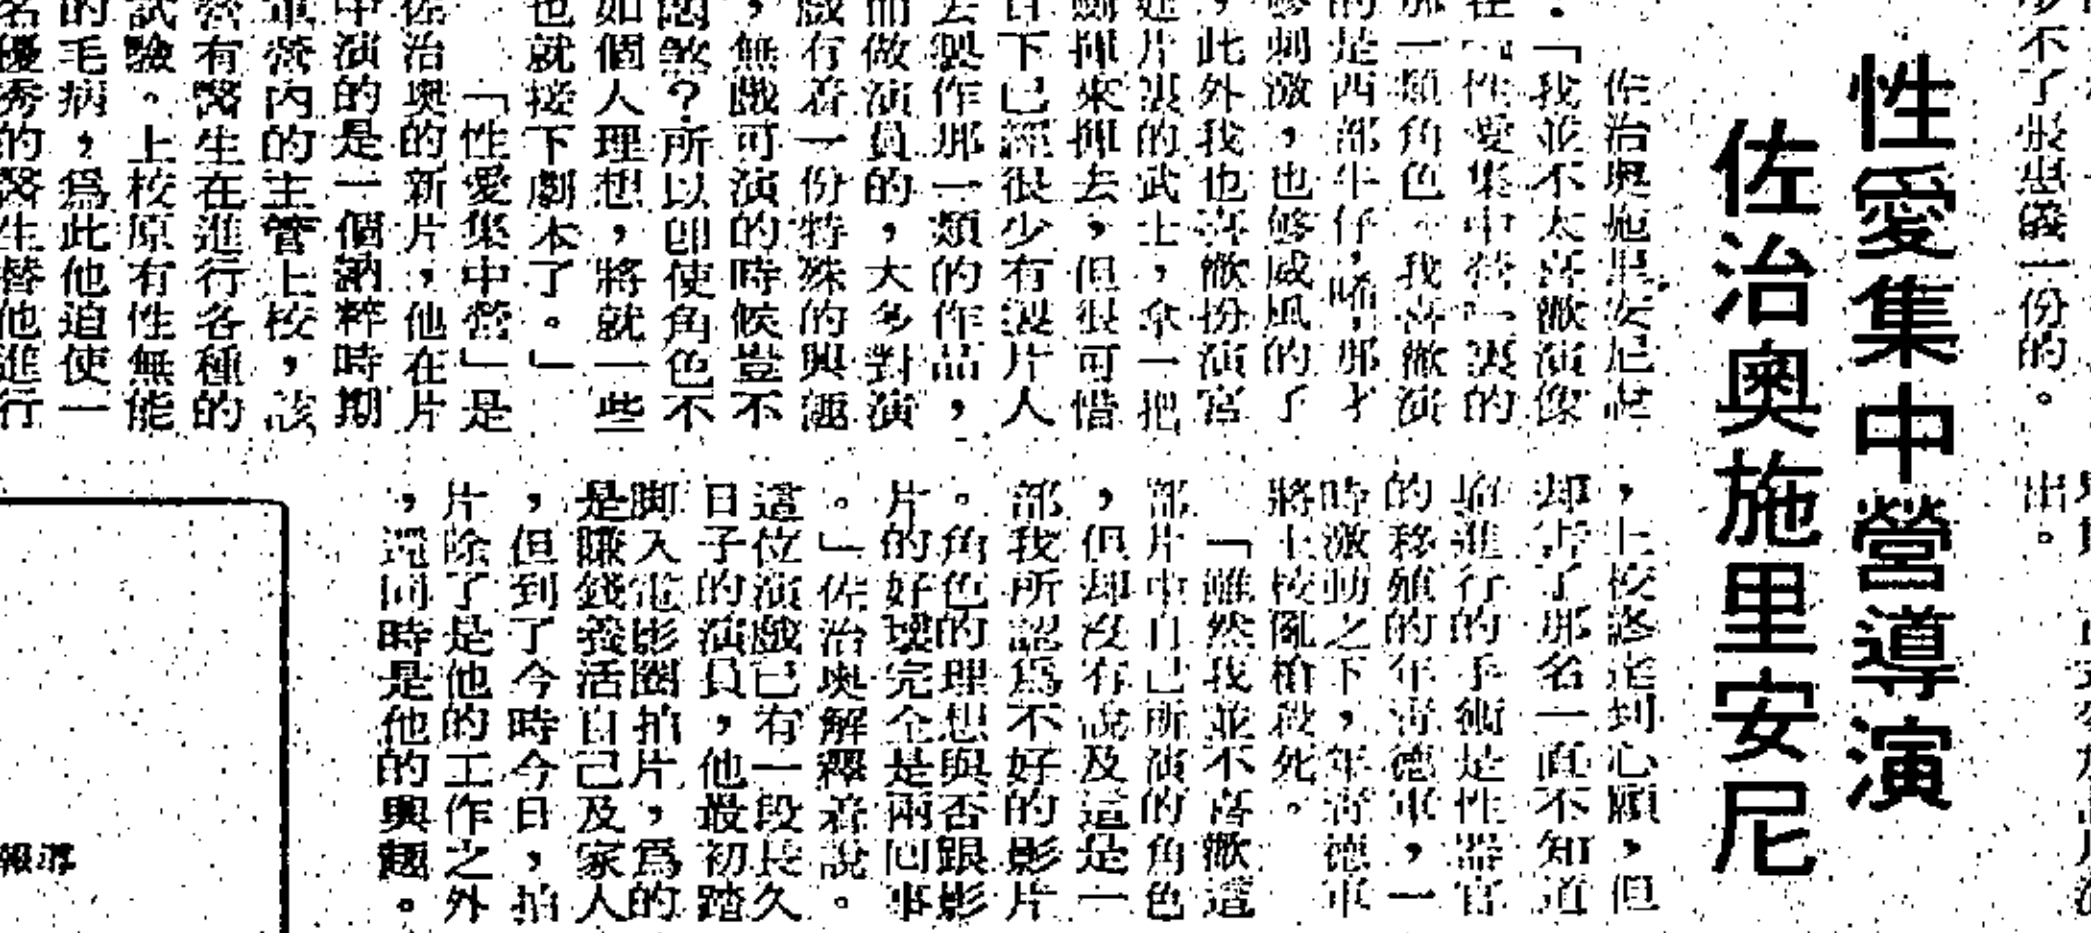 少不了張惠儀一份的。
出。
性愛集中營導演
佐治奧施里安尼
佐治奧施里安尼說
：「我並不太喜歡演像
在「性愛集中營」裏的
那一類角色。我喜歡演
的是西部牛仔，唏，那才
够刺激，也够威風的了
，此外我也喜歡扮演宮
廷片裏的武士，拿一把
劍揮來揮去，但很可惜
目下已經很少有製片人
去製作那一類的作品，
而做演員的，大多對演
戲有着一份特殊的興趣
，無戲可演的時候豈不
悶煞？所以即使角色不
如個人理想，將就一些
也就接下劇本了。」
「性愛集中營」是
佐治奧的新片，他在片
中演的是一個納粹時期
軍營內的主管上校，該
營有醫生在進行各種的
試驗。上校原有性無能
的毛病，爲此他迫使一
名優秀的醫生替他進行
，上校終達到心願，但
却害了那名一直不知道
給進行的手術是性器官
的移殖的年青德軍，一
時激動之下，年青德軍
將上校亂槍殺死。
「雖然我並不喜歡這
部片中自己所演的角色
，但却沒有說及這是一
部我所認爲不好的影片
。角色的理想與否跟影
片的好壞完全是兩回事
。」佐治奧解釋着說。
這位演戲已有一段長久
日子的演員，他最初踏
脚入電影圈拍片，爲的
是賺錢養活自己及家人
，但到了今時今日，拍
片除了是他的工作之外
，還同時是他的興趣。